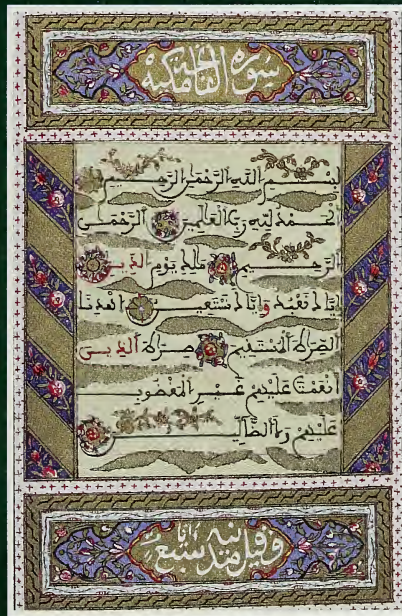 سورة الفاتحة مكية
بِسْمِ اللَّهِ الرَّحْمَنِ الرَّحِيمِ
الْحَمْدُ لِلَّهِ رَبِّ الْعَالَمِينَ الرَّحْمَنِ
الرَّحِيمِ مَلِكِ يَوْمِ الدِّينِ
إِيَّاكَ نَعْبُدُ وَإِيَّاكَ نَسْتَعِينُ اهْدِنَا
الصِّرَاطَ الْمُسْتَقِيمَ صِرَاطَ الَّذِينَ
أَنْعَمْتَ عَلَيْهِمْ غَيْرِ الْمَغْضُوبِ
عَلَيْهِمْ وَلَا الضَّالِّينَ
وقيل مدنية سبع